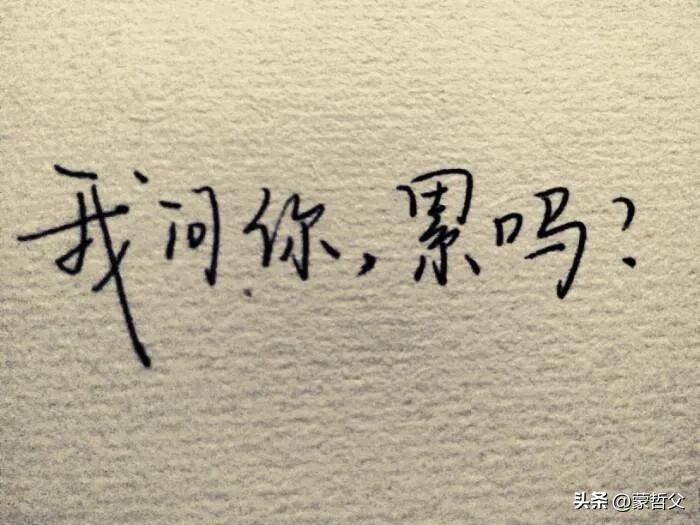 我问你,累吗?
头条 @蒙哲父